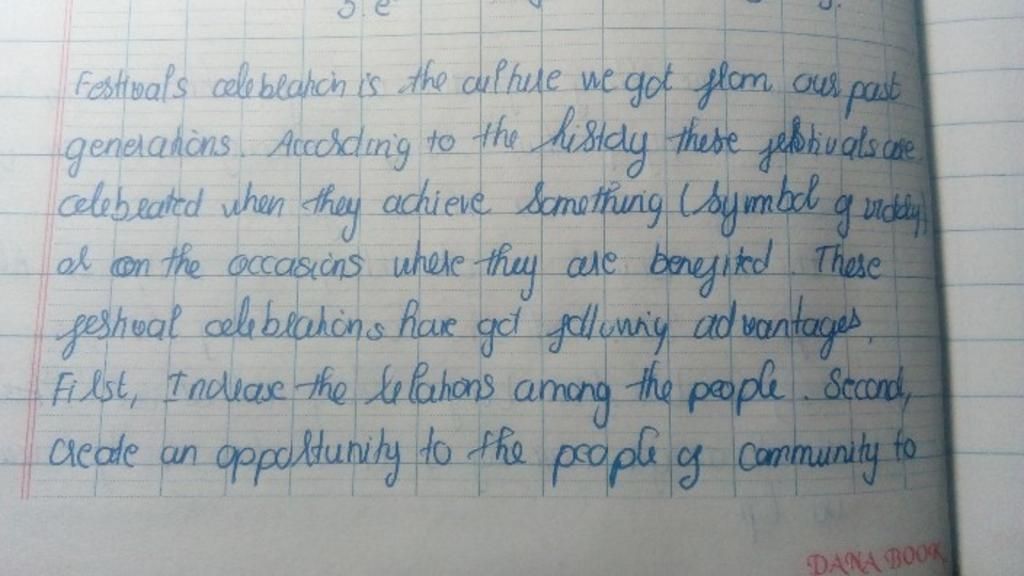 Festivals celebration is the culture we got from our past
generations. According to the histoy these festivals are
celebrated when they achieve something (symbol of victory)
or on the occasions where they are benefited. These
feshval celebrations have got following advantages.
First, Increase the relations among the people. Second,
create an opportunity to the people of community to
DANA BOOK